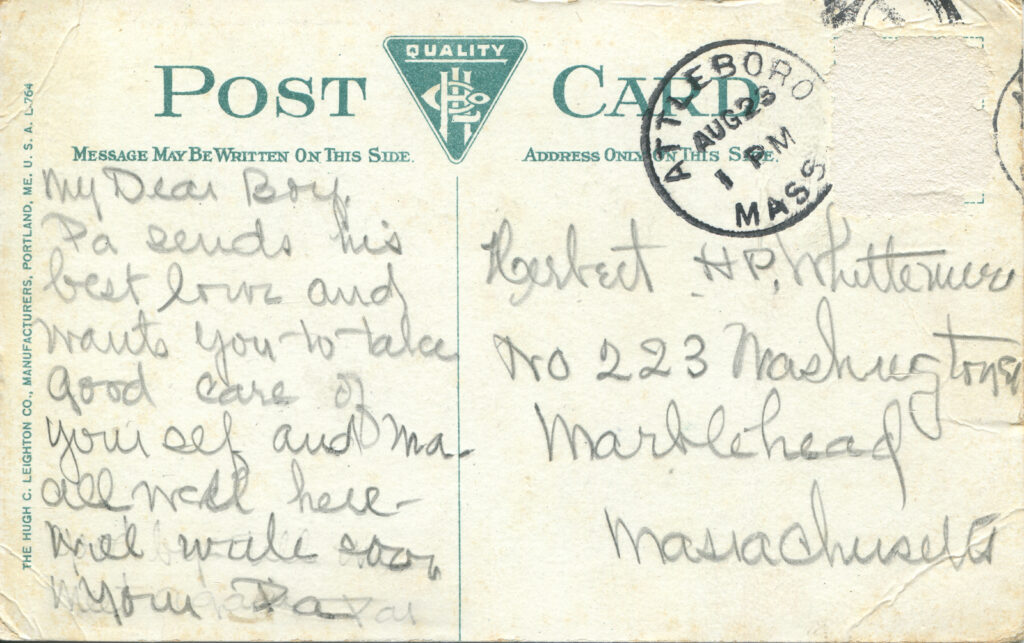 POST CARD
QUALITY
MESSAGE MAY BE WRITTEN ON THIS SIDE.
ADDRESS ONLY ON THIS SIDE.
THE HUGH C. LEIGHTON CO., MANUFACTURERS, PORTLAND, ME. U. S. A. L-764
ATTLEBORO
AUG 23
1 PM
MASS
My Dear Boy,
Pa sends his
best love and
wants you-to-take
good care of
yourself and Ma-
all well here-
will write soon,
Your Pa
Herbert H.P. Whittemore
No 223 Washington St
Marblehead
Massachusetts